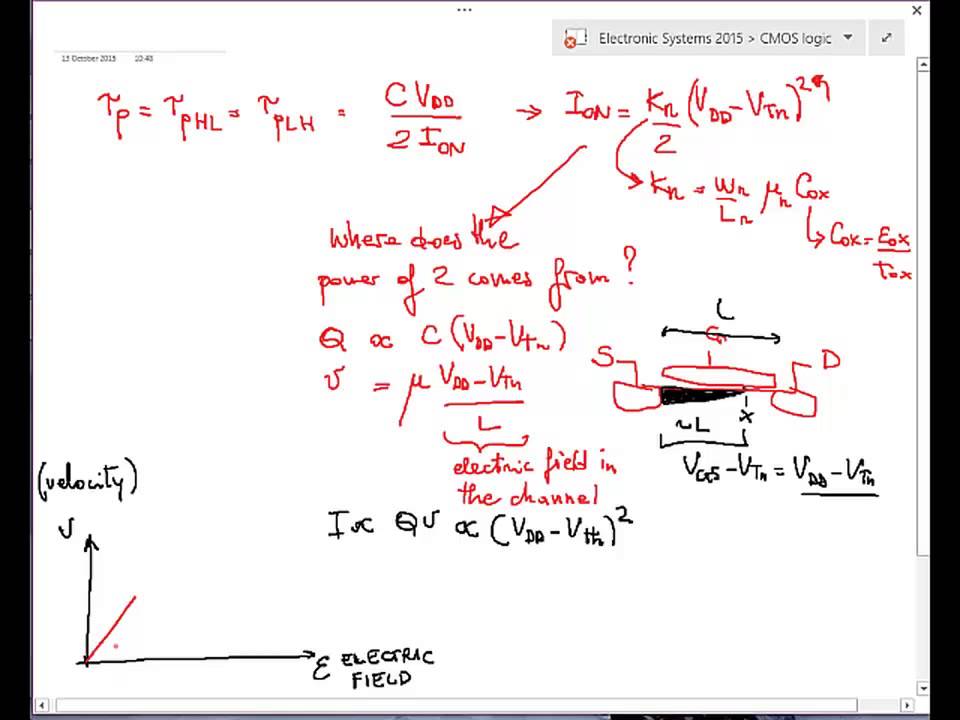 Electronic Systems 2015 > CMOS logic
13 October 2015 10:48
τp = τpHL = τpLH = C VDD / 2 ION → ION = Kn/2 (VDD - VTn)²
Kn = Wn/Ln μn Cox
Cox = εox/tox
Where does the
power of 2 comes from?
Q ∝ C (VDD - VTn)
v = μ (VDD - VTn)/L
electric field in
the channel
L
G
S D
x
~L
VGS - VTn = VDD - VTn
I ∝ Qv ∝ (VDD - Vth)²
(velocity)
v
ε ELECTRIC
FIELD